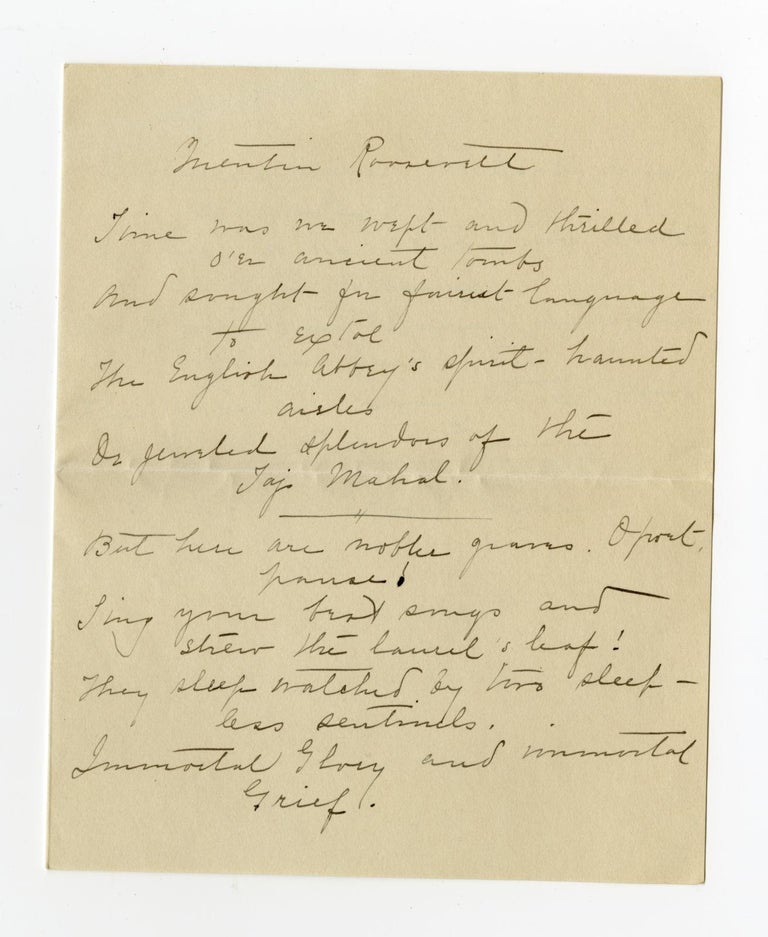 Quentin Roosevelt
Time was we wept and thrilled
o'er ancient tombs
And sought for fairest language
to extol
The English Abbey's spirit-haunted
aisles
Or jeweled splendors of the
Taj Mahal.
But here are nobler graves. O poet,
pause!
Sing your best songs and
strew the laurel's leaf!
They sleep watched by two sleep-
less sentinels.
Immortal Glory and immortal
Grief.